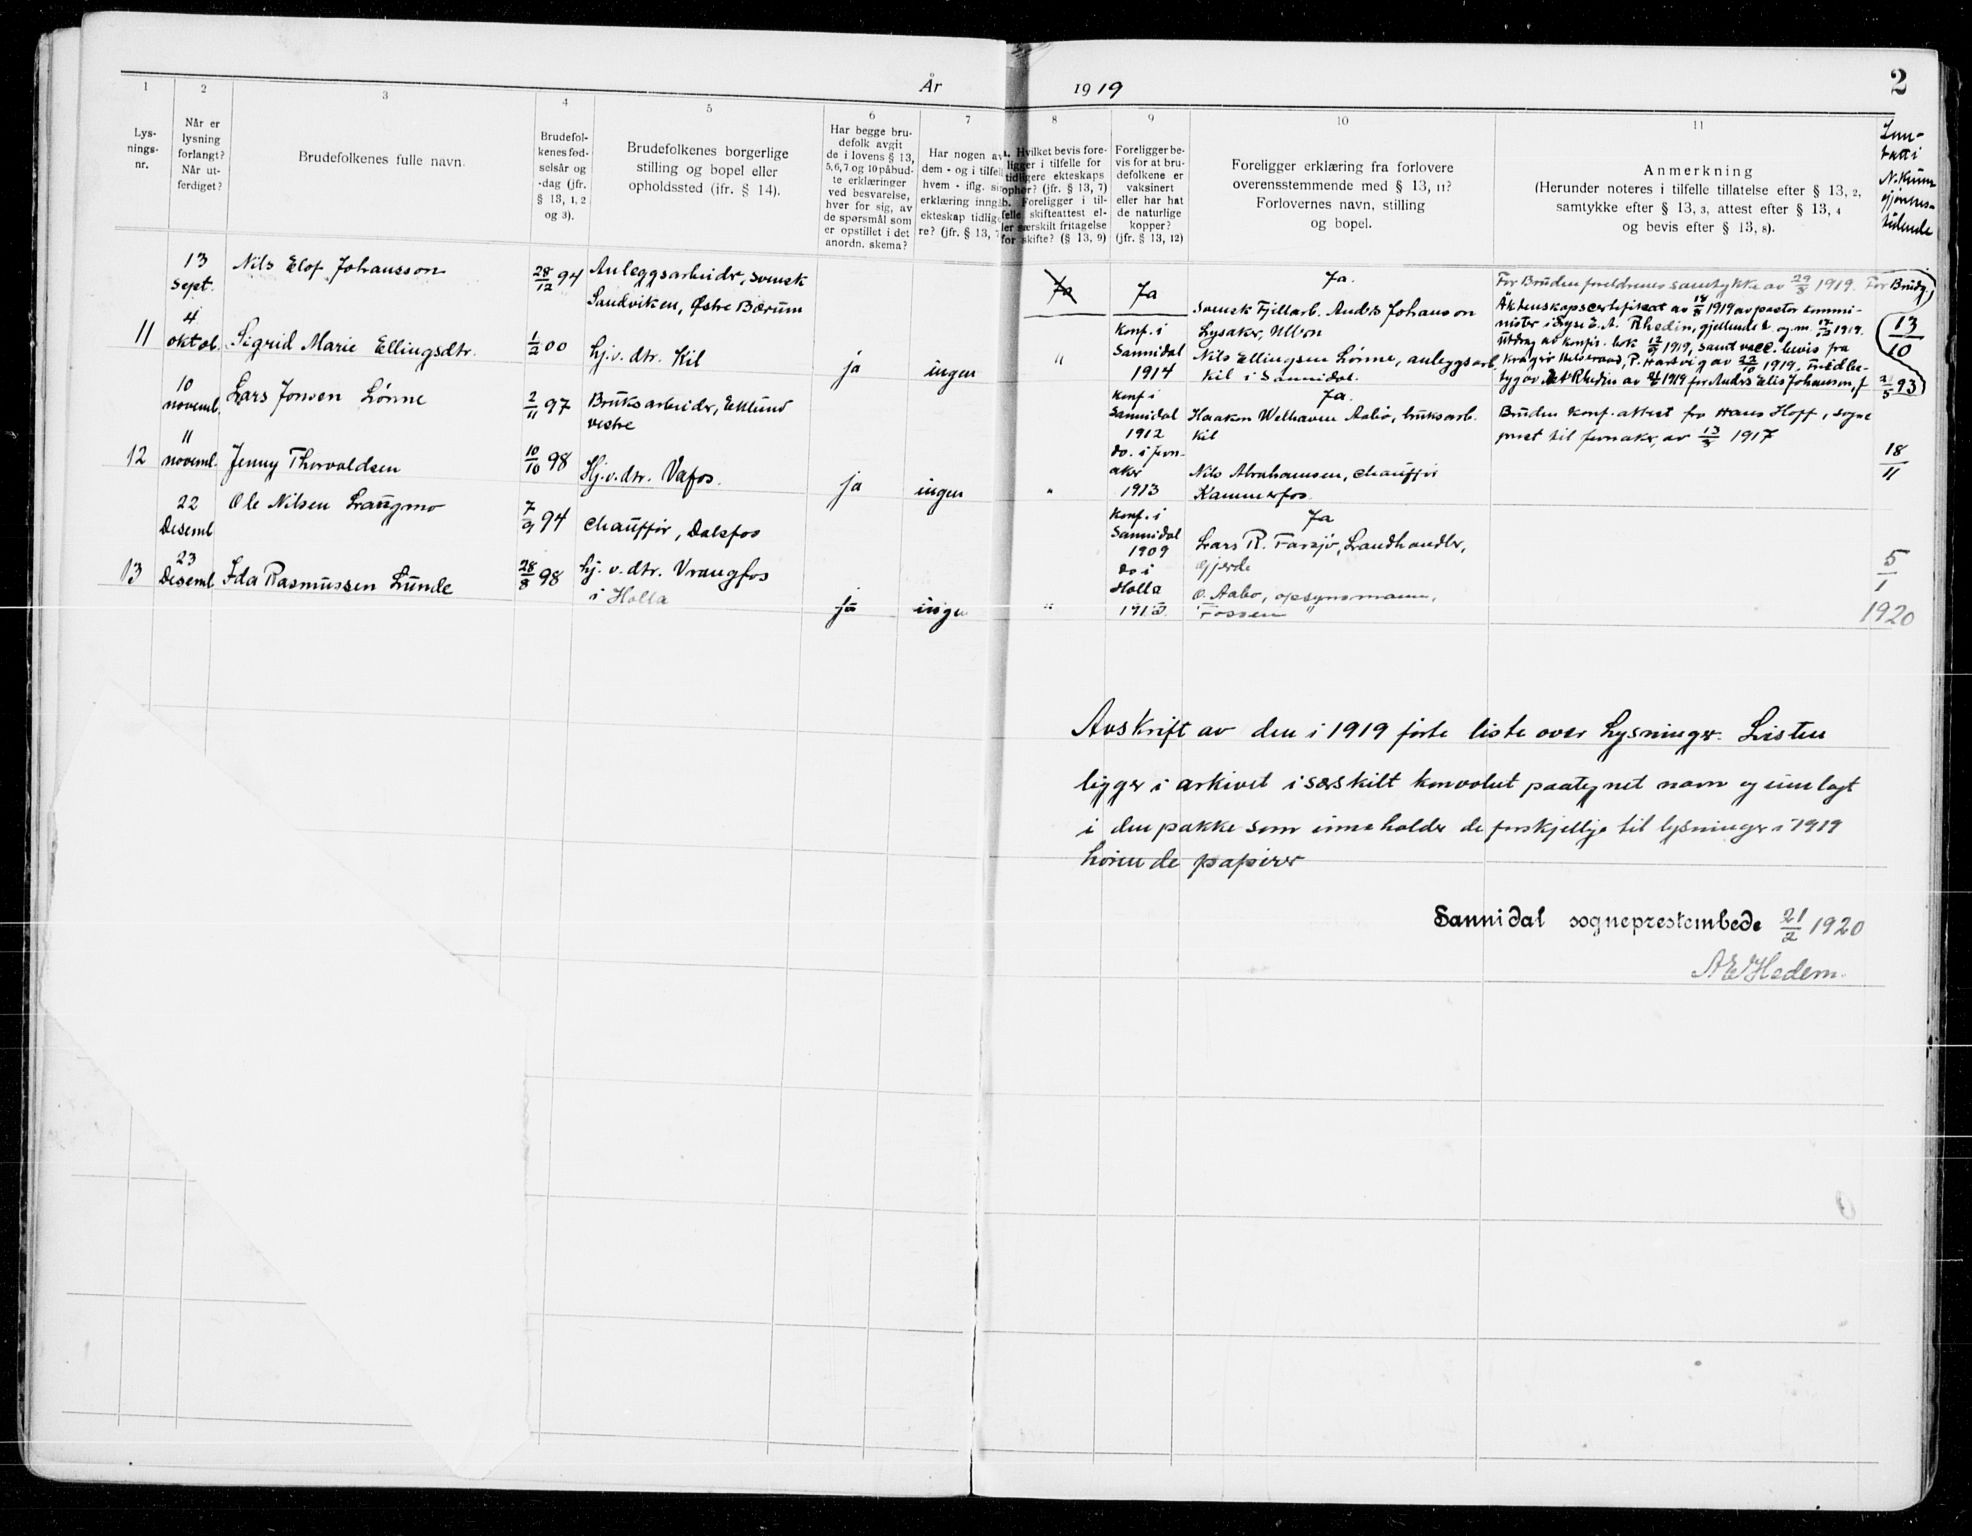 År 1919
2
1 2 3 4 5 6 7 8 9 10 11
Lys-
nings-
nr.
Når er
lysning
forlangt?
Når ut-
ferdiget?
Brudefolkenes fulle navn.
Brudefol-
kenes fød-
selsår og
-dag (jfr.
§ 13, 1, 2
og 3).
Brudefolkenes borgerlige
stilling og bopel eller
opholdssted (ifr. § 14).
Har begge bru-
defolk avgit
de i lovens § 13,
5, 6, 7 og 10 påbud-
te erklæringer
ved besvarelse,
hver for sig, av
de spørsmål som
er opstillet i det
anordn. skema?
Har nogen av
dem - og i tilfelle
hvem - iflg. sin
erklæring inngåt
ekteskap tidlige-
re? (jfr. § 13, 7
a. Hvilket bevis fore-
ligger i tilfelle for
tidligere ekteskaps
ophør? (jfr. § 13, 7)
b. Foreligger i til-
felle skifteattest el-
ler særskilt fritagelse
for skifte? (§ 13, 9)
Foreligger be-
vis for at bru-
defolkene er
vaksinert
eller har hat
de naturlige
kopper?
(jfr. § 13, 12)
Foreligger erklæring fra forlovere
overensstemmende med § 13, 11?
Forlovernes navn, stilling
og bopel.
Anmerkning
(Herunder noteres i tilfelle tillatelse efter § 13, 2,
samtykke efter § 13, 3, attest efter § 13, 4
og bevis efter § 13, 8).
13
Sept.
Nils Elof Johansson
28/12 94
Anleggsarbeider, svensk
Sandviken, Østre Bærum
Ja
Ja
Ja.
Svensk Fjellarb. Anders Johanson
Lysaker, Ullern
For Bruden foreldrenes samtykke av 29/8 1919. For Brudg.
11
4
oktob.
Sigrid Marie Ellingsdtr.
1/2 00
hj.v. dtr. Kil
ja
ingen
"
Konf. i
Sannidal
1914
Nils Ellingsen Lønne, anleggsarb.
Kil i Sannidal.
13/10
10
novemb.
Lars Jonsen Lønne
2/11 97
Bruksarbeider, Eklund
vestre
Konf i
Sannidal
1912
Ja.
Haakon Welhaven Aabø, bruksarb.
Kil
Bruden Konf. attest fra Hans Hoff, sogne
prest til Jevnaker, av 13/3 1917
12
11
novemb.
Jenny Thorvaldsen
10/10 98
Hj.v. dtr. Vafos.
ja
ingen
"
do. i Jevn-
aker
1913
Nils Abrahamsen, chauffør
Kammerfos.
18/11
22
Desemb
Ole Nilsen Langmo
7/9 94
Chauffør, Dalsfos
Konf. i
Sannidal
1909
Ja
Lars R. Farsjø, Landhandler,
Gjerde
13
23
Desemb
Ida Rasmussen Lunde
28/8 98
hj. v. dtr. Vrangfos
i Holla
ja
ingen
"
do i
Holla
O. Aabo, opsynsmann,
Fossen
5/1
1920
Avskrift av den i 1919 førte liste over Lysninger. Listen
ligger i arkivet i særskilt konvolut paategnet navn og innlagt
i den pakke som inneholder de forskjellige til lysninger i 1919
hørende papirer
Sannidal sogneprestembede 21/2 1920